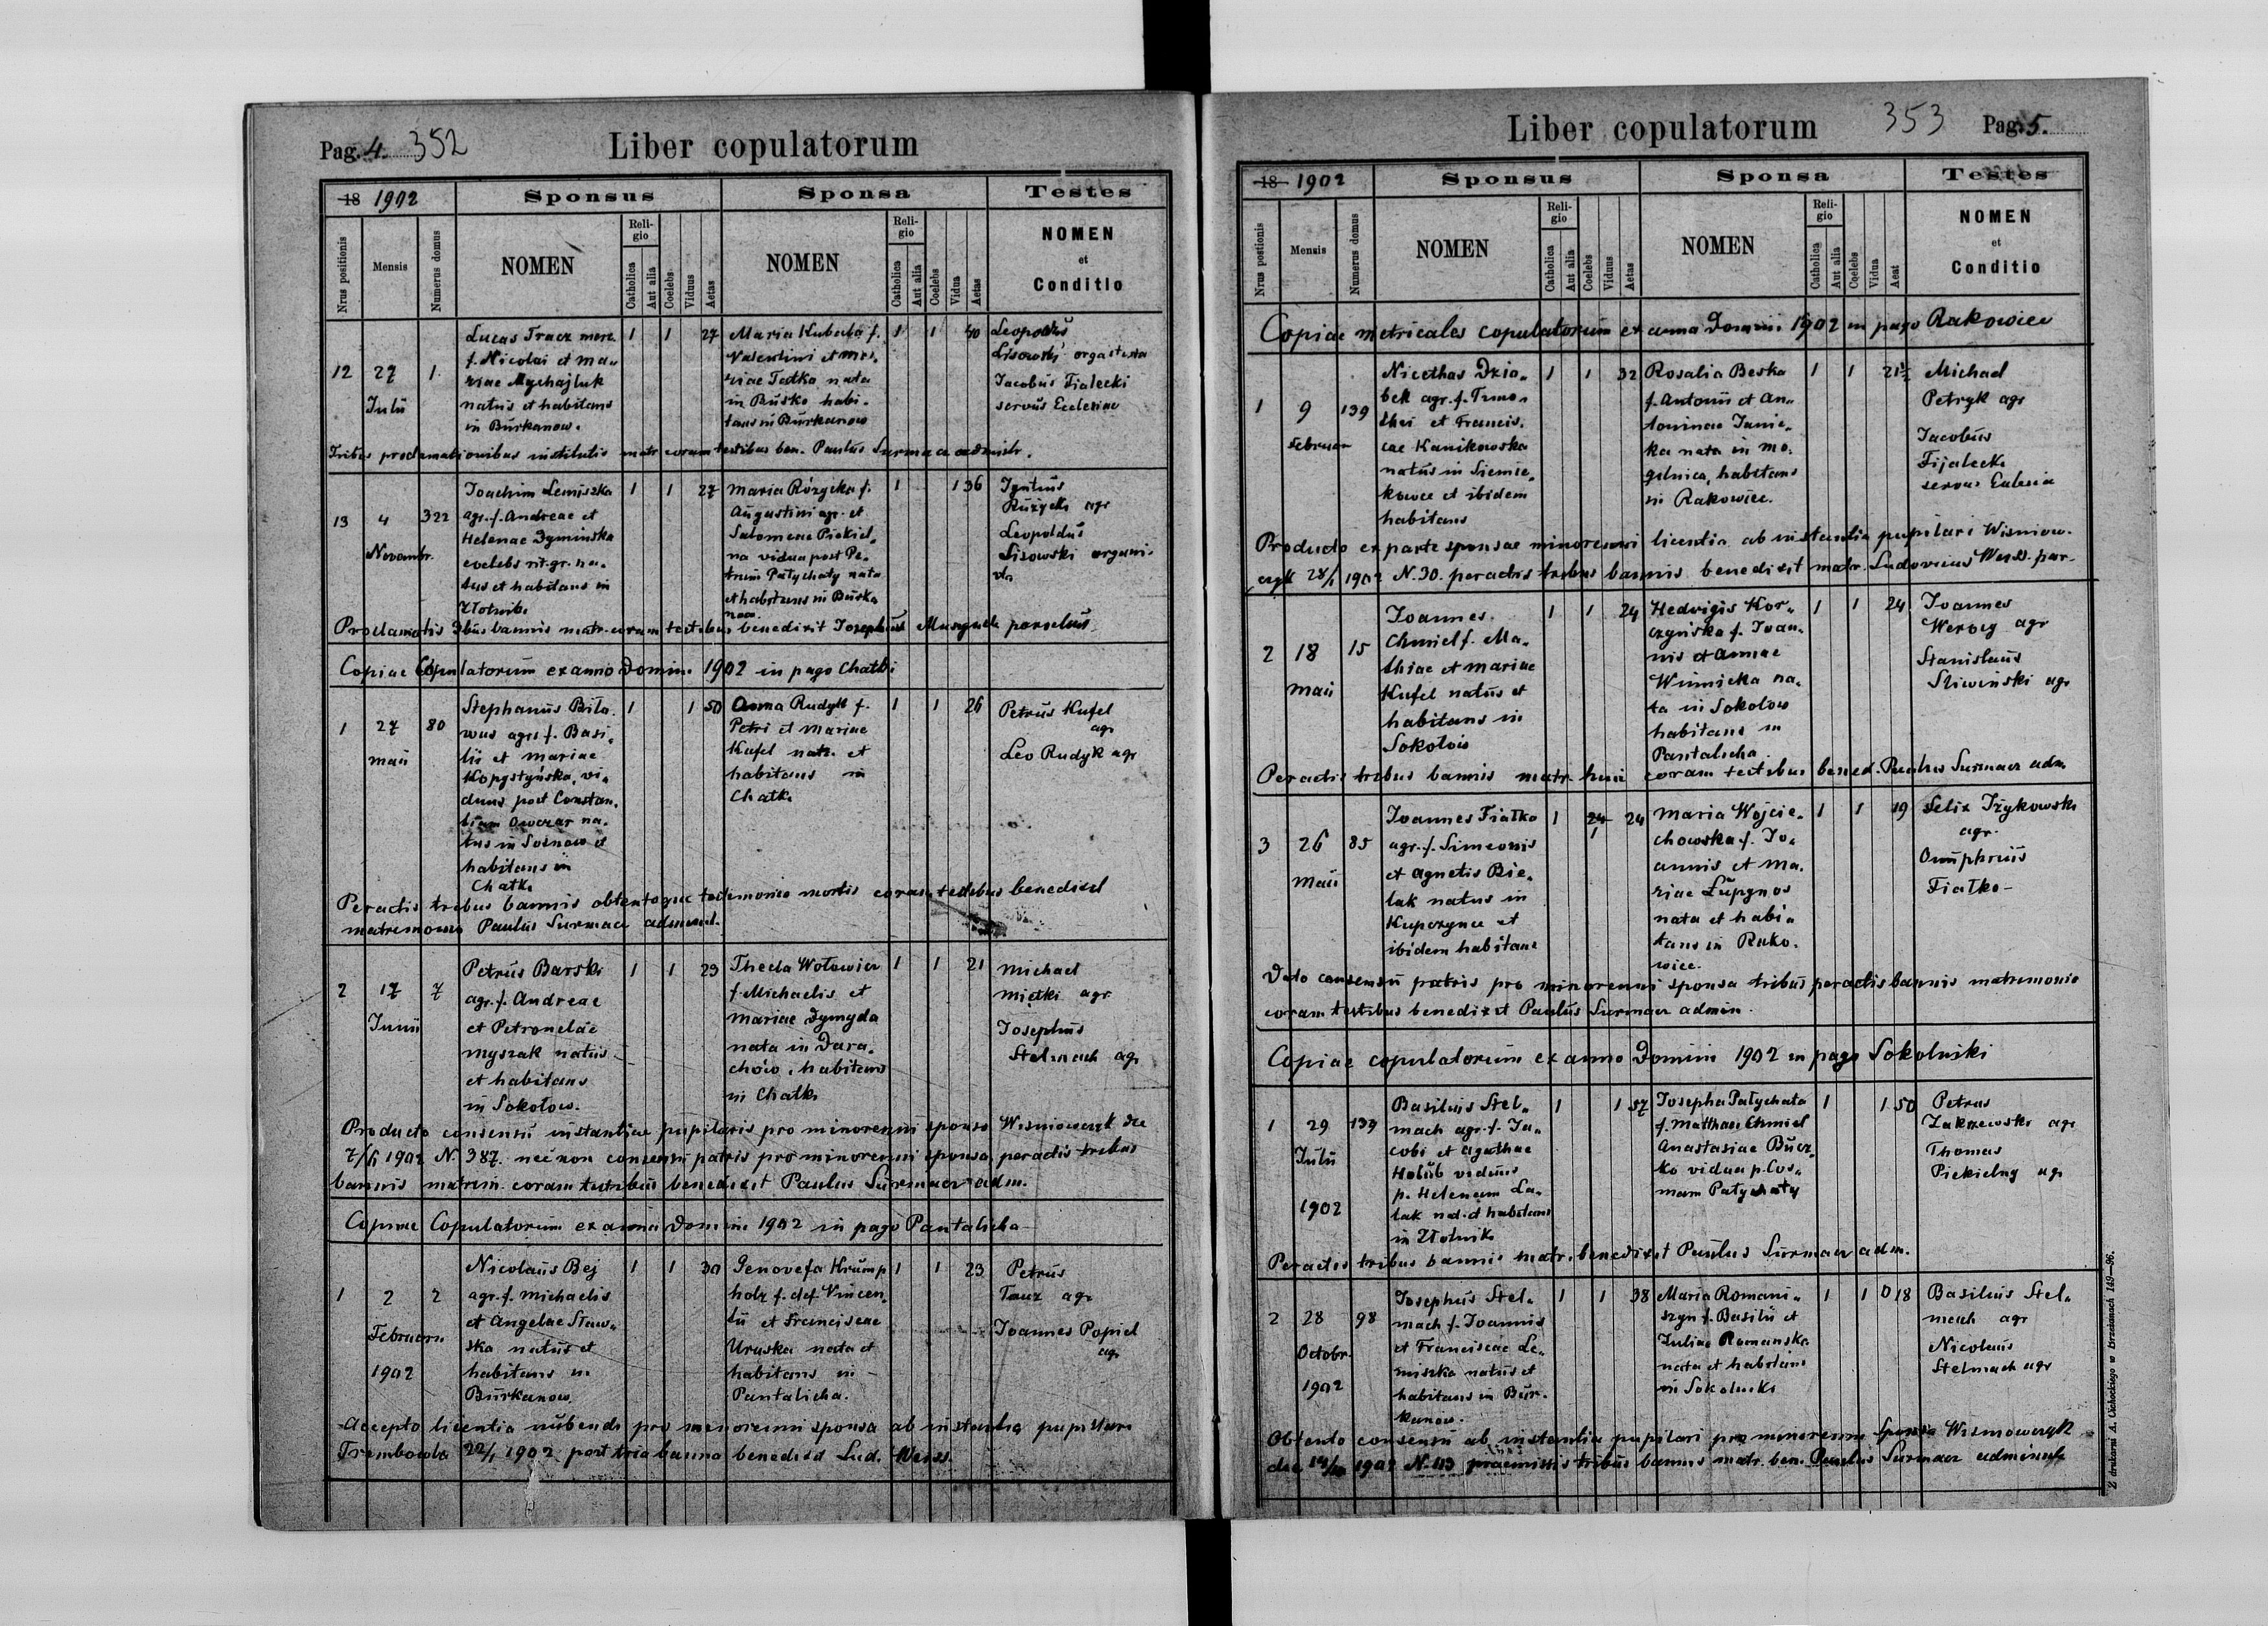 Pag. 4. 352
Liber copulatorum
18 1902
Sponsus
Sponsa
Testes
Nrus positionis
Mensis
Numerus domus
NOMEN
Reli-
gio
Catholica
Aut alia
Coelebs
Viduus
Aetas
NOMEN
Reli-
gio
Catholica
Aut alia
Coelebs
Vidua
Aetas
NOMEN
et
Conditio
12
27
Julii
1.
Lucas Tracz merc.
f. Nicolai et Ma„
riae Mychajluk
natus et habitans
in Burkanow.
1
1
27
Maria Kubacka f.
Valentini et Ma„
riae Tatka nata
in Busko habi„
tans in Burkanow
1
1
40
Leopoldus
Lisowski organista
Jacobus Fialecki
servus Ecclesiae
Tribus proclamationibus institutis matr. coram testibus ben. Paulus Surmacz administr.
13
4
Novembr.
322
Joachim Lemiszka
agr. f. Andreae et
Helenae Dyminska
coelebs rit. gr. na„
tus et habitans in
Złotnik.
1
1
27
Maria Rózycka f.
Augustini agr. et
Salomeae Piekiel„
na vidua post Pe„
trum Patychaty nata
et habitans in Burka
now
1
1
36
Ignatius
Ruzycki agr
Leopoldus
Lisowski organi„
sta
Proclamatis 3bus bannis matr. coram testibus benedixit Josephus parochus
Copiae Copulatorum ex anno Domini 1902 in pago Chatki
1
27
Maii
80
Stephanus Bilo„
wus agr. f. Basi„
lii et Mariae
Kopystyńska, vi„
duus post Constan„
tiam Owczar na„
tus in Sosnow et
habitans in
Chatki
1
1
50
Anna Rudyk f.
Petri et Mariae
Kufel nata et
habitans in
Chatki
1
1
26
Petrus Kufel
agr
Leo Rudyk agr
Peractis tribus bannis obtentoque testimonio mortis coram testibus benedixit
matrimonium Paulus Surmacz administ.
2
17
Junii
7
Petrus Barski
agr. f. Andreae
et Petronelae
Myszak natus
et habitans
in Sokołow.
1
1
23
Thecla Wołowiec
f. Michaelis et
Mariae Dymyda
nata in Dara„
chów, habitans
in Chatki
1
1
21
Michael
Miętki agr.
Josephus
Stelmach agr
Producto consensu instantiae pupilaris pro minorenni sponso Wisniowczyk dte
7/6 1902 N. 387. necnon consensu patris pro minorenni sponsa, peractis tribus
bannis matrim. coram testibus benedixit Paulus Surmacz adm.
Copiae Copulatorum ex anno Domini 1902 in pago Pantalicha
1
2
Februarii
1902
2
Nicolaus Bej
agr. f. Michaelis
et Angelae Staw„
ska natus et
habitans in
Burkanow
1
1
30
Genovefa Krump
holz f. def. Vincen„
tii et Franciscae
Uruska nata et
habitans in
Pantalicha.
1
1
23
Petrus
Tauz agr
Joannes Popiel
agr
Accepto licentia nubendi pro minorenni sponsa ab instantia pupillari
Trembowla 22/1 1902 post tria banna benedixit Lud. Weiss.
Liber copulatorum
353 Pag. 5.
18 1902
Sponsus
Sponsa
Testes
Nrus positionis
Mensis
Numerus domus
NOMEN
Reli-
gio
Catholica
Aut alia
Coelebs
Viduus
Aetas
NOMEN
Reli-
gio
Catholica
Aut alia
Coelebs
Vidua
Aeat
NOMEN
et
Conditio
Copiae metricales copulatorum ex anno Domini 1902 in pago Rakowiec
1
9
Februar
139
Nicethas Dzio„
bek agr. f. Timo„
thei et Francis„
cae Kanikowska
natus in Siemie„
kowce et ibidem
habitans
1
1
32
Rosalia Beska
f. Antonii et An„
toninae Janic„
ka nata in Mo„
gelnica, habitans
in Rakowiec.
1
1
21½
Michael
Petryk agr
Jacobus
Fijalecki
servus Eclesiae
Producto ex parte sponsae minorenni licentia ab instantia pupilari Wisniow„
czyk 28/1 1902 N. 30. peractis tribus bannis benedixit matr. Ludovicus Weiss. par.
2
18
Maii
15
Joannes
Chmiel f. Ma„
thiae et Mariae
Kufel natus et
habitans in
Sokołow
1
1
24
Hedvigis Kor„
czyńska f. Joan„
nis et Annae
Winnicka na„
ta in Sokołow
habitans in
Pantalicha.
1
1
24
Joannes
Werbey agr
Stanislaus
Sliwinski agr
Peractis tribus bannis matr. huic coram testibus bened. Paulus Surmacz adm.
3
26
Maii
85
Joannes Fiałko
agr. f. Simeonis
et Agnetis Bie„
lak natus in
Kupczynce et
ibidem habitans
1
24
1
24
Maria Wojcie„
chowska f. Jo„
annis et Ma„
riae Łupynos
nata et habi„
tans in Rako„
wiec.
1
1
19
Felix Iżykowski
agr.
Onuphrius
Fiałko
Dato consensu patris pro minorenni sponsa tribus peractis bannis matrimonio
coram testibus benedixit Paulus Surmacz admin.
Copiae copulatorum ex anno Domini 1902 in pago Sokolniki
1
29
Julii
1902
139
Basilius Stel„
mach agr. f. Ja„
cobi et Agathae
Holub viduus
p. Helenam La„
tak nat. et habitans
in Złotnik
1
1
57
Josepha Patychata
f. Matthaei Chmiel
Anastasiae Bucz„
ko vidua p. Cos„
mam Patychaty
1
1
50
Petrus
Zakrzewski agr
Thomas
Piekielny agr
Peractis tribus bannis matr. benedixit Paulus Surmacz adm.
2
28
Octobr.
1902
98
Josephus Stel„
mach f. Joannis
et Franciscae Le„
miszka natus et
habitans in Bur„
kanow.
1
1
38
Maria Romani„
szyn f. Basilii et
Juliae Romanska
nata et habitans
in Sokolniki
1
1
18
Basilius Stel„
mach agr
Nicolaus
Stelmach agr
Obtento consensu ab instantia pupilari pro minorenni sponsa Wisniowczyk
N. 113 praemissis tribus bannis matr. ben. Paulus Surmacz administ
Z drukarni A. Cichockiego w Brzeżanach 149—96.